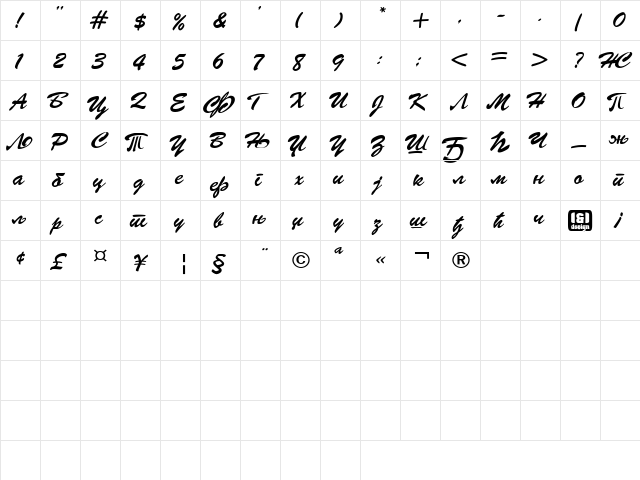 ! " # $ % & ' ( ) * + , - . / 0
1 2 3 4 5 6 7 8 9 : ; < = > ? Ж
А Б Ц Д Е Ф Г Х И Ј К Л М Н О П
Љ Р С Т У В Њ Џ У З Ш Ђ Ћ Ч _ ж
а б ц д е ф г х и ј к л м н о п
љ р с т у в њ џ у з ш ђ ћ ч I&I design ¡
¢ £ ¤ ¥ ¦ § ¨ © ª « ¬ ®